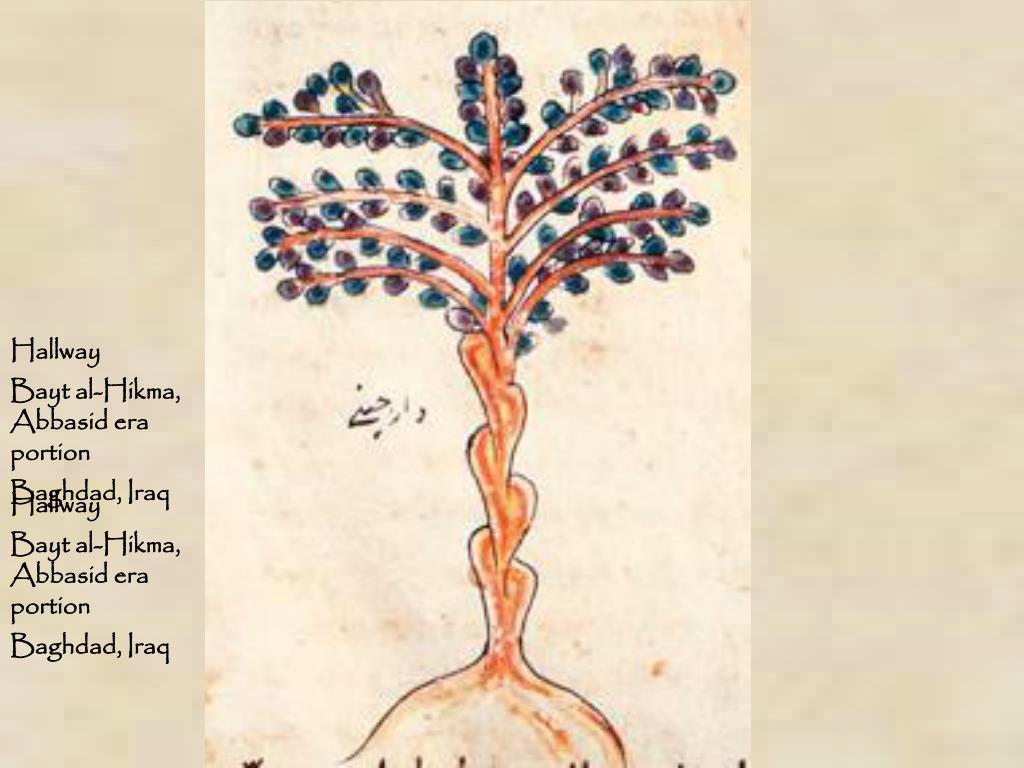 Hallway
Bayt al-Hikma,
Abbasid era
portion
Baghdad, Iraq
Hallway
Bayt al-Hikma,
Abbasid era
portion
Baghdad, Iraq
دارچینے